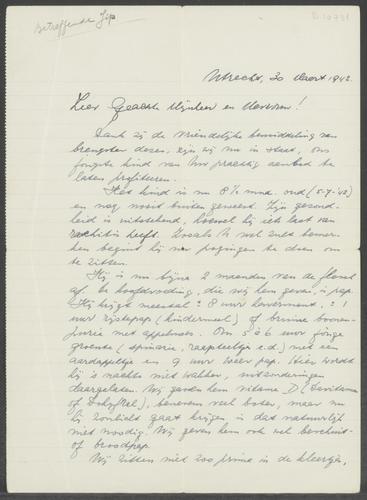 Betreffende Jip
Utrecht, 30 Maart 1942.
Zeer Geachte Mijnheer en Mevrouw!
Dank zij de vriendelijke bemiddeling van
brengster dezes, zijn wij nu in staat, ons
jongste kind van Uw prachtig aanbod te
laten profiteeren.
Het kind is nu 8½ mnd. oud
en nog nooit buiten geweest. Zijn gezond-
heid is uitstekend, hoewel hij iets last van
rachitis heeft. Zooals U wel zult bemer-
ken begint hij nu pogingen te doen om
te zitten.
Hij is nu bijna 2 maanden van de flesch
af. De hoofdvoeding, die wij hem geven is pap.
Hij krijgt meestal: 8 uur havermout, 1
uur rijstepap (kindermeel) of bruine boonen-
purée met appelmoes. Om 5 à 6 uur jonge
groente (spinazie, raapsteeltje e.d.) met een
aardappeltje en 9 uur weer pap. Hier wordt
hij 's nachts niet wakker, uitzonderingen
daargelaten. Wij gaven hem vitamine D
of Dohyfral), benevens veel boter, maar nu
hij zonlicht gaat krijgen is dat natuurlijk
niet noodig. Wij geven hem ook wel beschuit-
of broodpap.
Wij zitten niet zoo prima in de kleertjes,